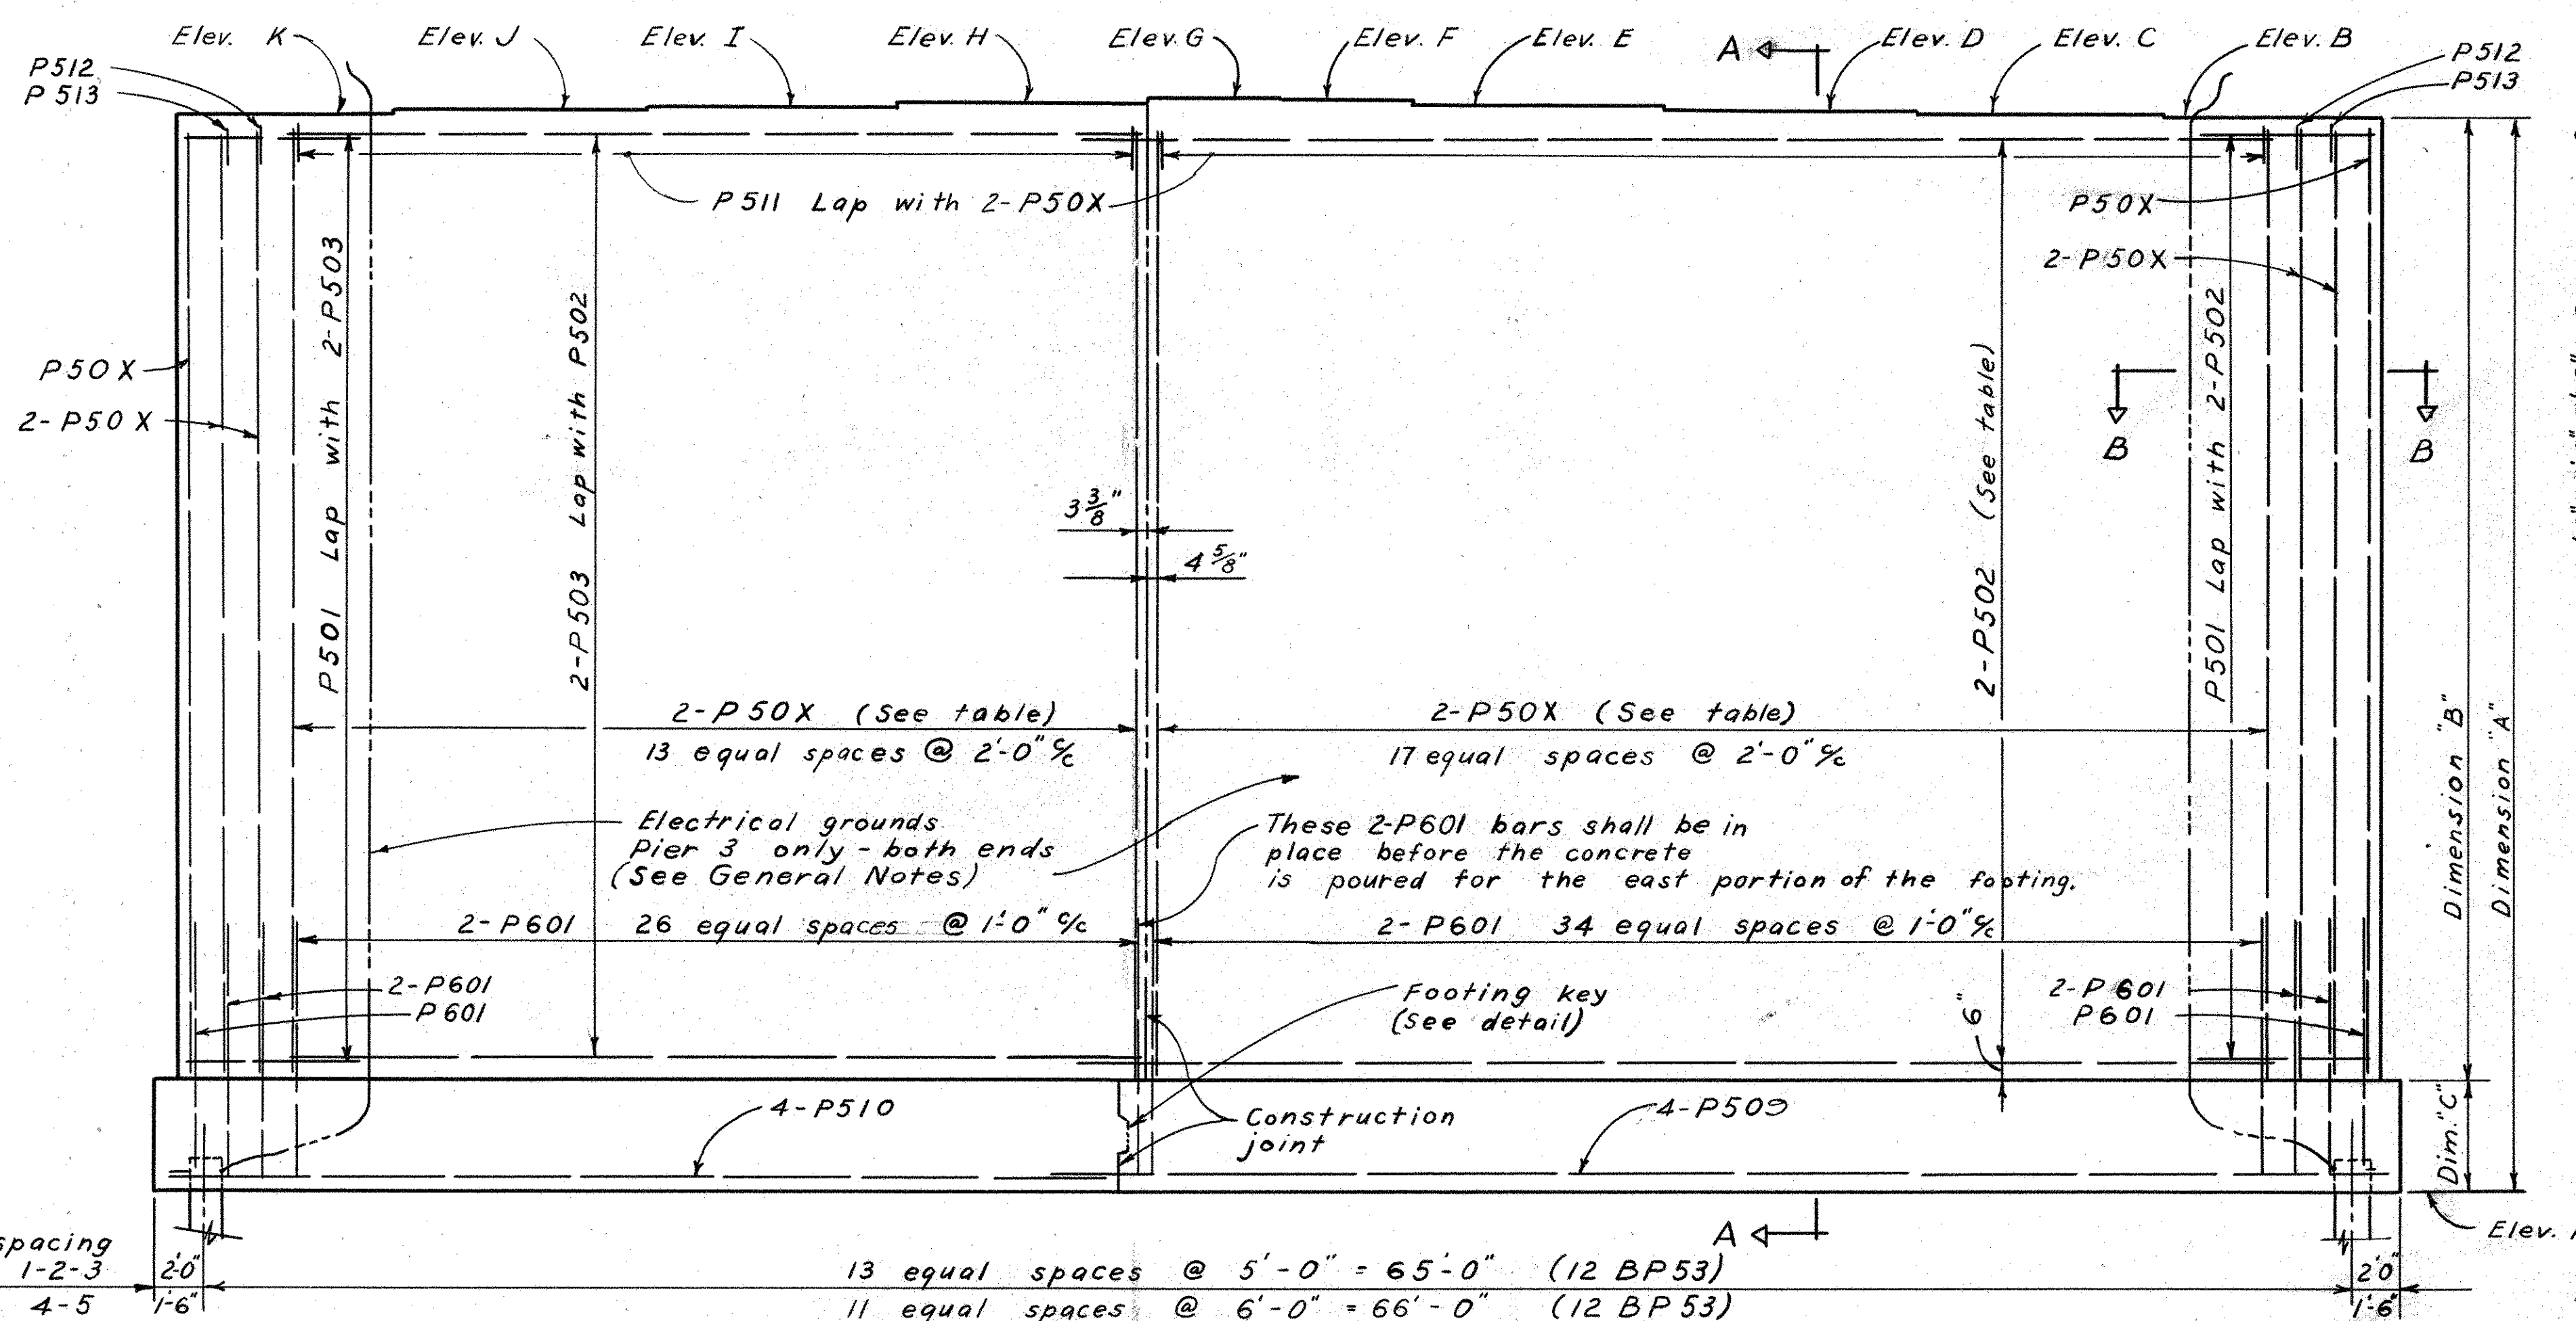 Elev. K
Elev. J
Elev. I
Elev. H
Elev. G
Elev. F
Elev. E
A
Elev. D
Elev. C
Elev. B
P512
P513
P512
P513
P511 Lap with 2-P50X
P50X
2-P50X
P50X
2-P50X
P501 Lap with 2-P503
2-P503 Lap with P502
2-P502 (See table)
P501 Lap with 2-P502
B
B
3 3/8"
4 5/8"
2-P50X (See table)
13 equal spaces @ 2'-0" c/c
2-P50X (See table)
17 equal spaces @ 2'-0" c/c
Dimension "B"
Dimension "A"
Electrical grounds
Pier 3 only - both ends
(See General Notes)
These 2-P601 bars shall be in
place before the concrete
is poured for the east portion of the footing.
2-P601 26 equal spaces @ 1'-0" c/c
2-P601 34 equal spaces @ 1'-0" c/c
2-P601
P601
Footing key
(See detail)
6"
2-P601
P601
4-P510
Construction
joint
4-P509
Dim. "C"
A
Elev.
spacing
1-2-3
4-5
2'-0"
1'-6"
13 equal spaces @ 5'-0" = 65'-0" (12 BP53)
11 equal spaces @ 6'-0" = 66'-0" (12 BP53)
2'0"
1'-6"